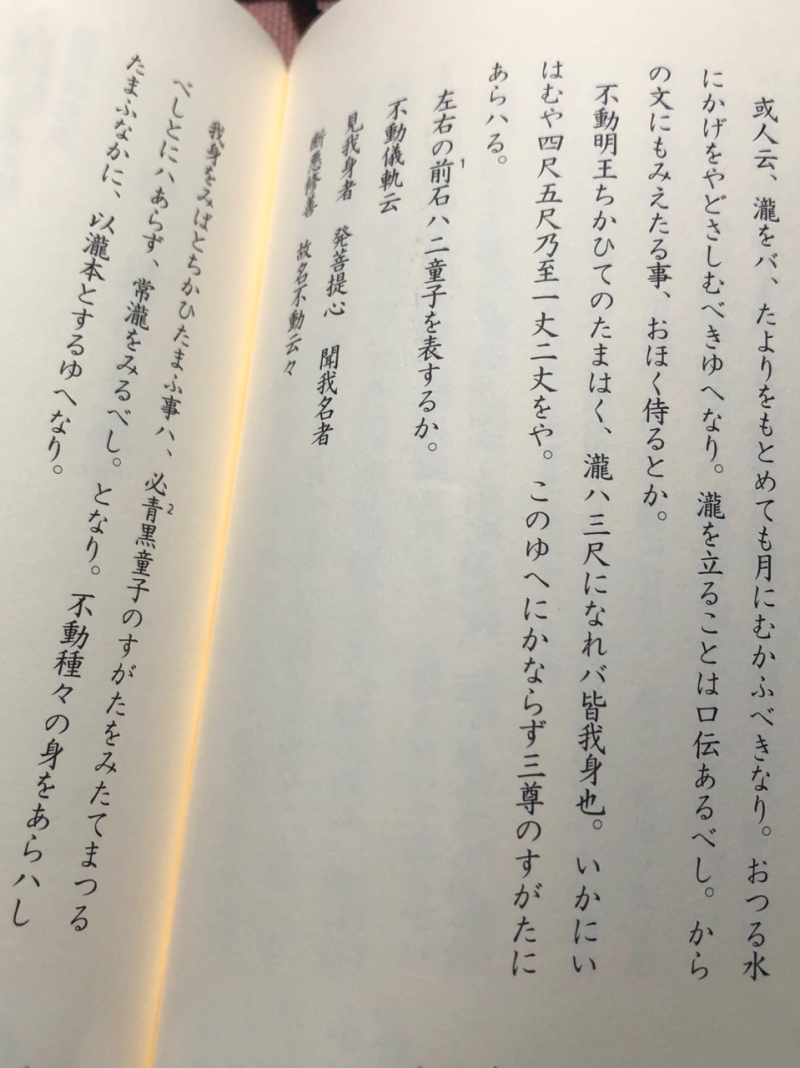 或人云、瀧をバ、たよりをもとめても月にむかふべきなり。おつる水
にかげをやどさしむべきゆへなり。瀧を立ることは口伝あるべし。から
の文にもみえたる事、おほく侍るとか。
不動明王ちかひてのたまはく、瀧ハ三尺になれバ皆我身也。いかにい
はむや四尺五尺乃至一丈二丈をや。このゆへにかならず三尊のすがたに
あらハる。
左右の前石ハ二童子を表するか。1
不動儀軌云
見我身者 発菩提心 聞我名者
断悪修善 故名不動云々
我身をみばとちかひたまふ事ハ、必青黒童子のすがたをみたてまつる2
べしとにハあらず、常瀧をみるべし。となり。不動種々の身をあらハし
たまふなかに、以瀧本とするゆへなり。